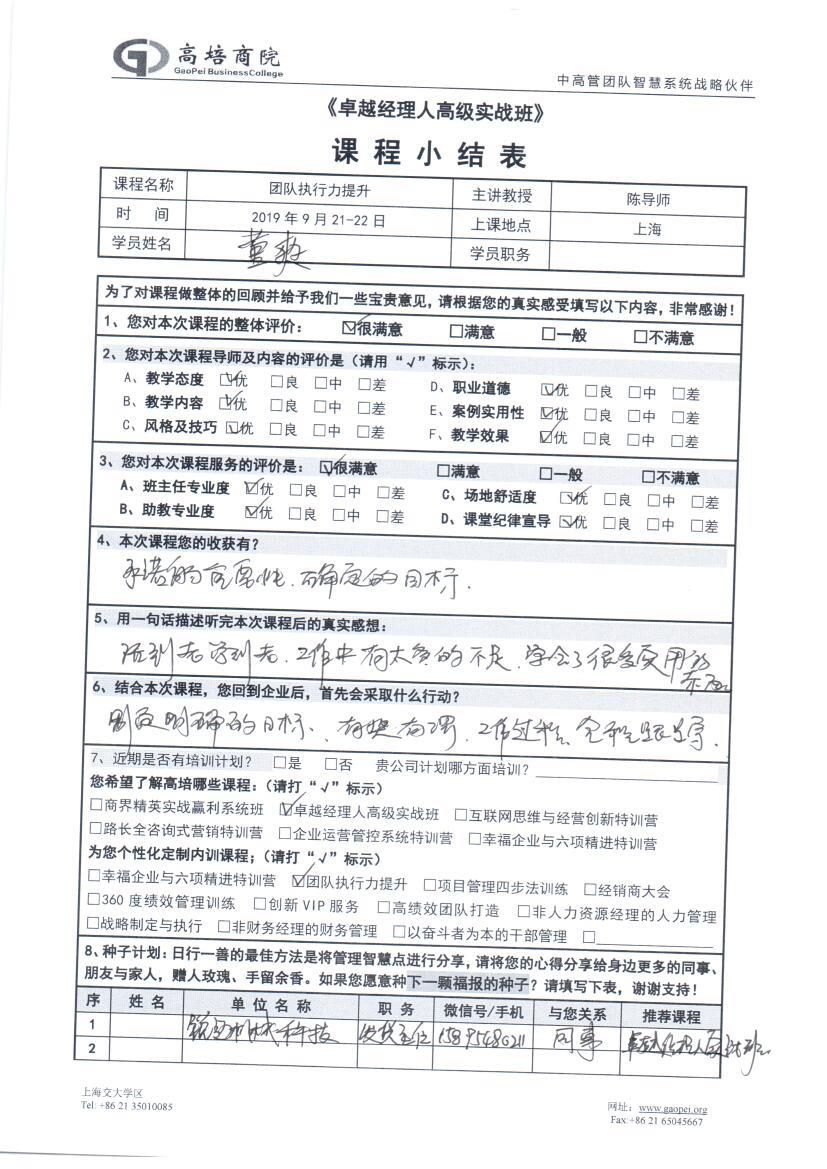 高培商院
GaoPei BusinessCollege
中高管团队智慧系统战略伙伴
《卓越经理人高级实战班》
课程小结表
课程名称 团队执行力提升 主讲教授 陈导师
时 间 2019年9月21-22日 上课地点 上海
学员姓名 董爽 学员职务
为了对课程做整体的回顾并给予我们一些宝贵意见,请根据您的真实感受填写以下内容,非常感谢!
1、您对本次课程的整体评价: ☑很满意 □满意 □一般 □不满意
2、您对本次课程导师及内容的评价是(请用“√”标示):
A、教学态度 ☑优 □良 □中 □差 D、职业道德 ☑优 □良 □中 □差
B、教学内容 ☑优 □良 □中 □差 E、案例实用性 ☑优 □良 □中 □差
C、风格及技巧 ☑优 □良 □中 □差 F、教学效果 ☑优 □良 □中 □差
3、您对本次课程服务的评价是: ☑很满意 □满意 □一般 □不满意
A、班主任专业度 ☑优 □良 □中 □差 C、场地舒适度 ☑优 □良 □中 □差
B、助教专业度 ☑优 □良 □中 □差 D、课堂纪律宣导 ☑优 □良 □中 □差
4、本次课程您的收获有?
承诺的重要性、明确的目标.
5、用一句话描述听完本次课程后的真实感想:
活到老学到老、工作中有太多的不足、学会了很多实用的
东西
6、结合本次课程,您回到企业后,首先会采取什么行动?
制定明确的目标、有奖有罚、工作过程全程跟导.
7、近期是否有培训计划? □是 □否 贵公司计划哪方面培训?
您希望了解高培哪些课程:(请打“√”标示)
□商界精英实战赢利系统班 ☑卓越经理人高级实战班 □互联网思维与经营创新特训营
□路长全咨询式营销特训营 □企业运营管控系统特训营 □幸福企业与六项精进特训营
为您个性化定制内训课程;(请打“√”标示)
□幸福企业与六项精进特训营 ☑团队执行力提升 □项目管理四步法训练 □经销商大会
□360度绩效管理训练 □创新VIP服务 □高绩效团队打造 □非人力资源经理的人力管理
□战略制定与执行 □非财务经理的财务管理 □以奋斗者为本的干部管理 □
8、种子计划:日行一善的最佳方法是将管理智慧点进行分享,请将您的心得分享给身边更多的同事、
朋友与家人,赠人玫瑰、手留余香。如果您愿意种下一颗福报的种子?请填写下表,谢谢支持!
序 姓 名 单 位 名 称 职 务 微信号/手机 与您关系 推荐课程
1 机械科技 同事 卓越经理人实战班
2
上海交大学区
Tel: +86 21 35010085
网址: www.gaopei.org
Fax:+86 21 65045667